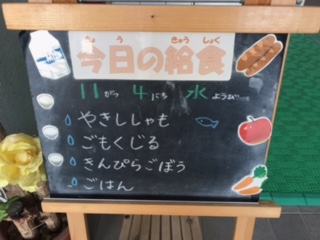 きょう きゅうしょく
今日の給食
11がつ 4にち 水ようび
やきししゃも
ごもくじる
きんぴらごぼう
ごはん